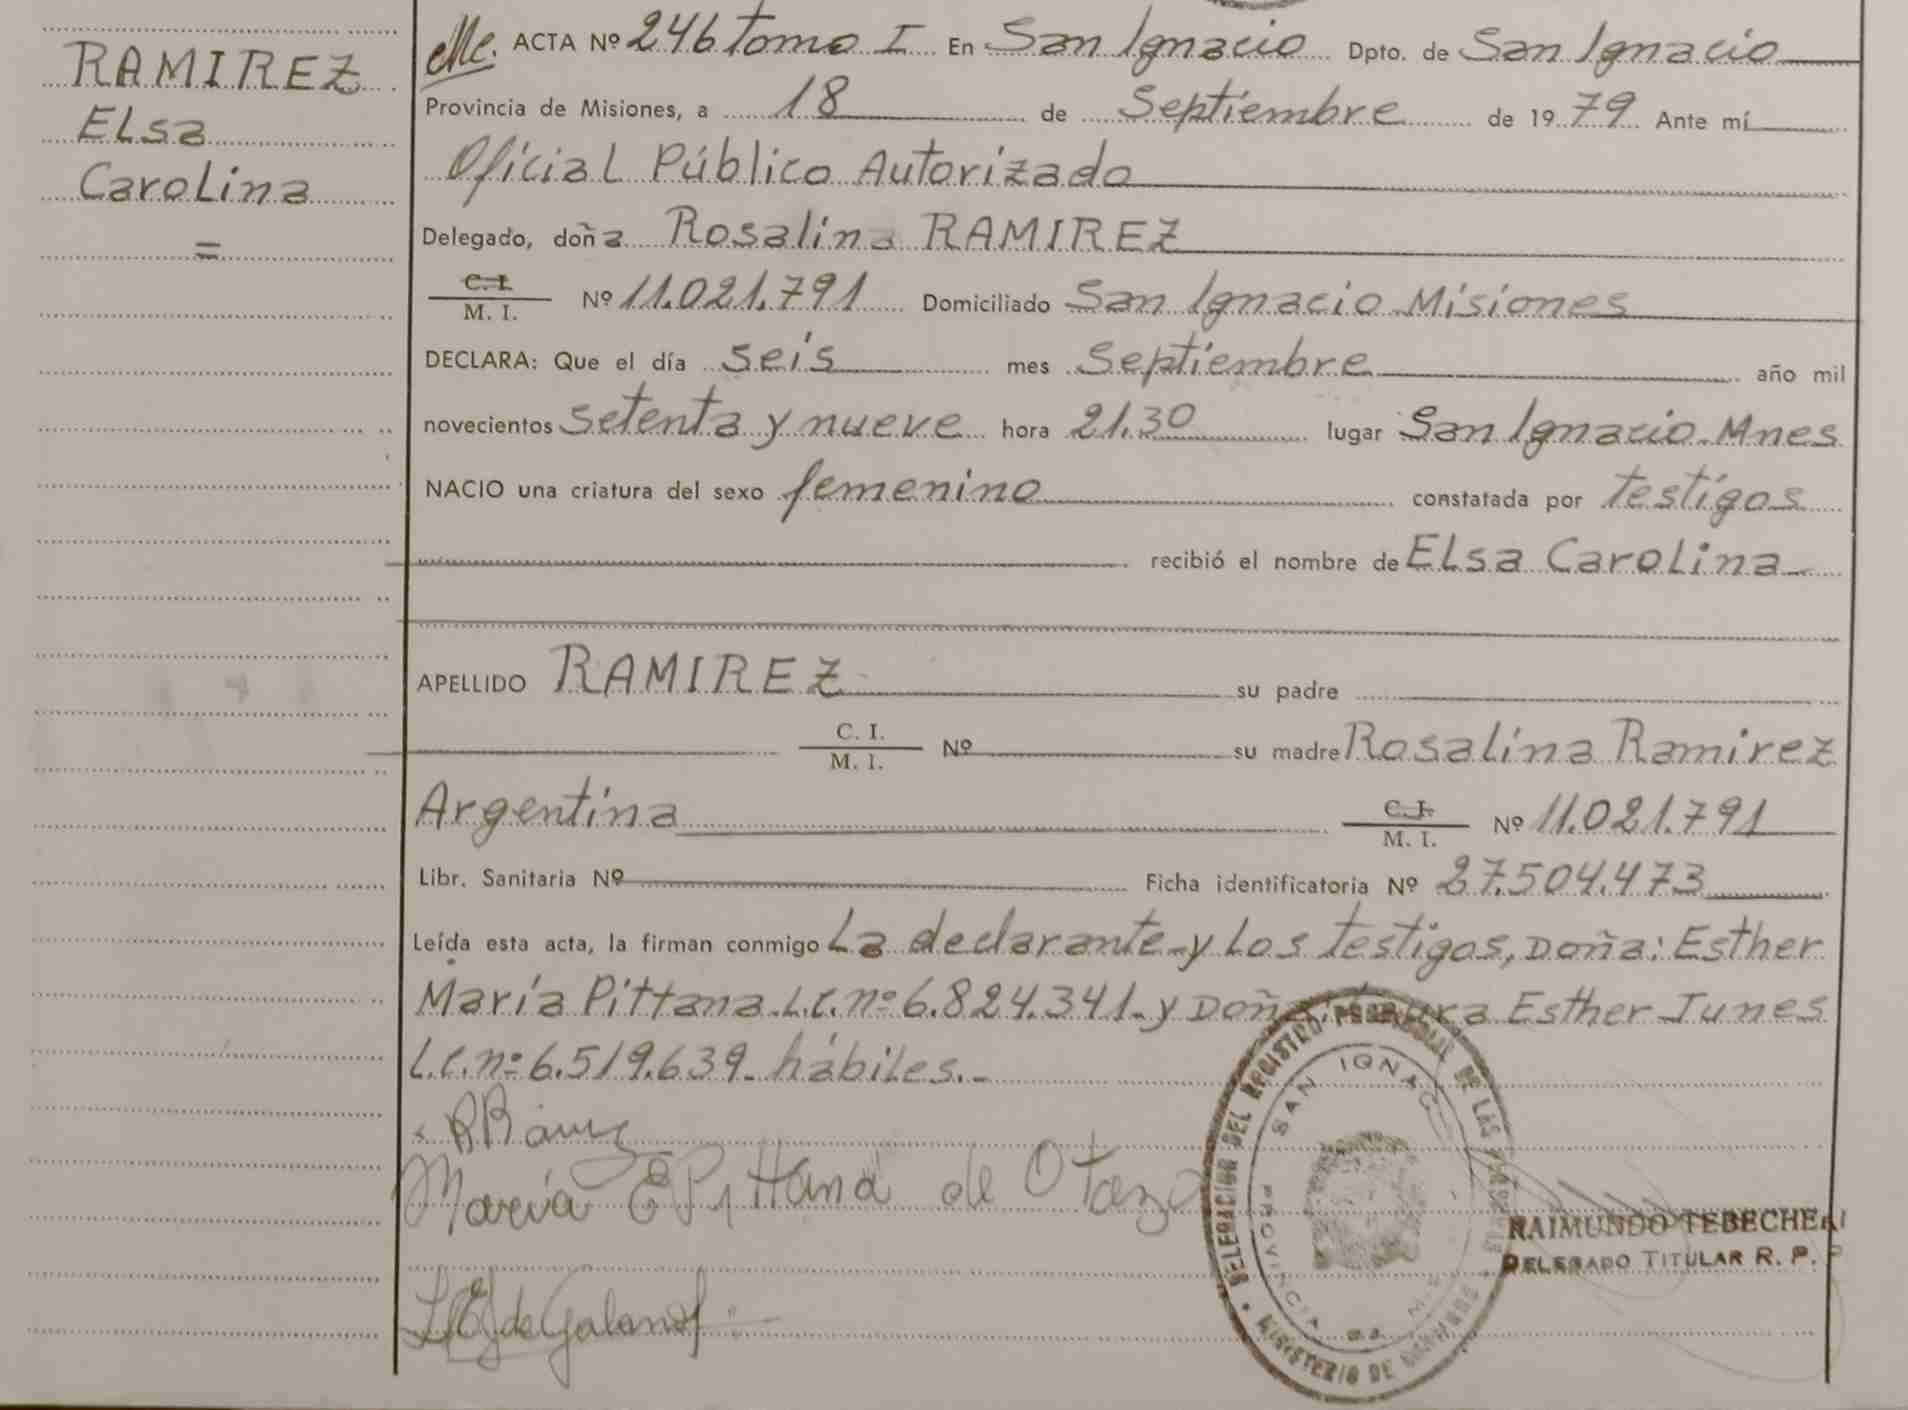 RAMIREZ
Elsa
Carolina
=
ACTA Nº 246 tomo I En San Ignacio Dpto. de San Ignacio
Provincia de Misiones, a 18 de Septiembre de 1979 Ante mí
Oficial Público Autorizado
Delegado, doña Rosalina RAMIREZ
C. I.
M. I. Nº 11.021.791 Domiciliado San Ignacio Misiones
DECLARA: Que el día seis mes Septiembre año mil
novecientos setenta y nueve hora 21.30 lugar San Ignacio Mnes
NACIO una criatura del sexo femenino constatada por testigos
recibió el nombre de Elsa Carolina
APELLIDO RAMIREZ su padre
C. I.
M. I. Nº su madre Rosalina Ramirez
Argentina C. I.
M. I. Nº 11.021.791
Libr. Sanitaria Nº Ficha identificatoria Nº 27.504.473
Leída esta acta, la firman conmigo La declarante y los testigos, Doña: Esther
María Pittana L.C. nº 6.824.341 y Doña Esther Junes
L.C. nº 6.519.639 hábiles.-
María E Pittana de Otazo
L E J de
DELEGACION DEL REGISTRO PROVINCIAL DE LAS PERSONAS
SAN IGNACIO
PROVINCIA DE
MINISTERIO DE
RAIMUNDO TEBECHERI
DELEGADO TITULAR R. P. P